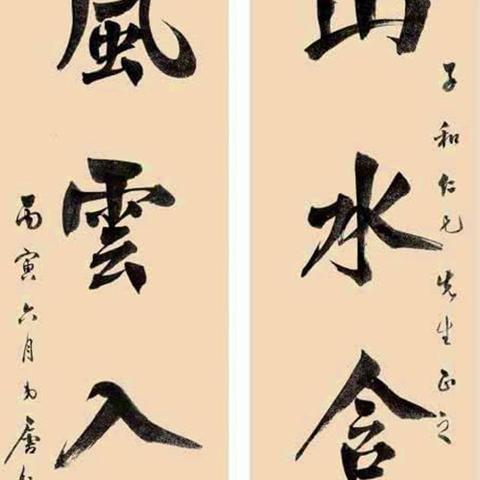 子和仁兄先生正之
山水含
風雲入
丙寅六月弟唐